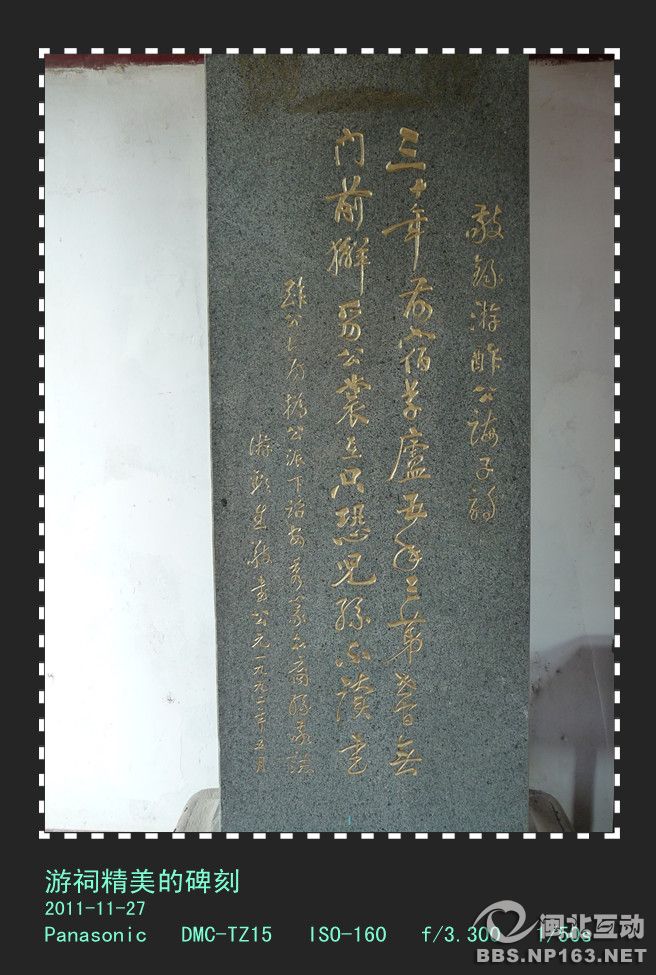 敬錄游酢公誨子詩
三十年前宿草廬五年三第世間無
門前獬豸公裳在只恐兒孫不讀書
酢公長房撝公派下詔安秀篆
游 敬書公元一九九二年五月
游祠精美的碑刻
2011-11-27
Panasonic DMC-TZ15 ISO-160 f/3.300 1/50s
闽北互动
BBS.NP163.NET